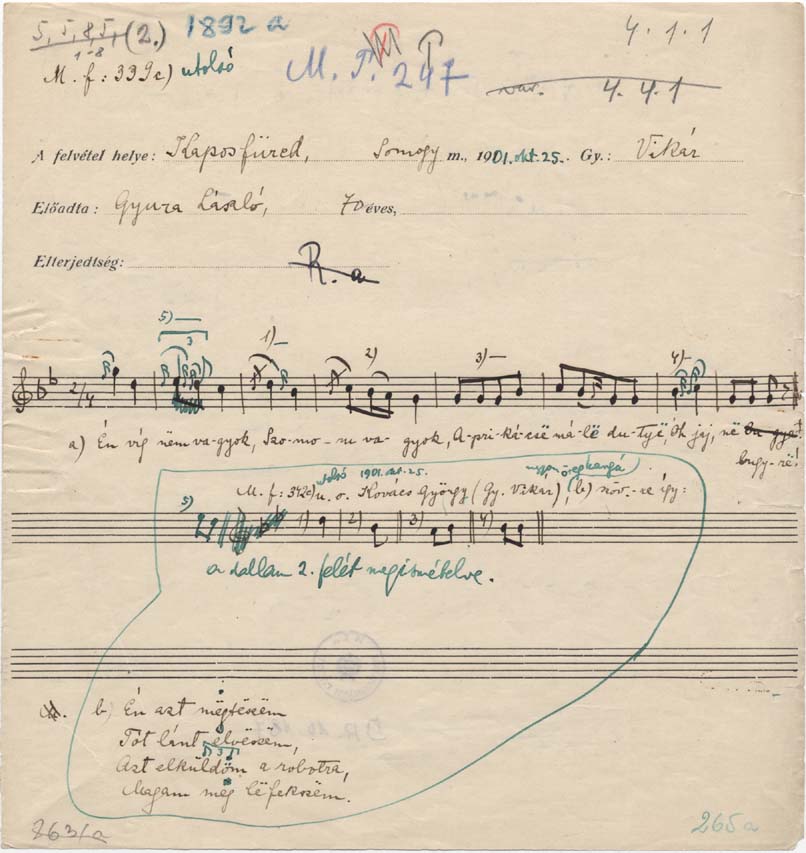 5, 5, 8, 5, (2.) 1892 a 4. 1. 1
1-8
M. f: 339c) utolsó M. F. 247 var. 4. 4. 1
A felvétel helye: Kaposfüred, Somogy m., 1901. okt. 25. Gy.: Vikár
Előadta: Gyura László, 70 éves,
Elterjedtség:
R. a
5) 3 1) 2) 3) 4)
2/4
a) Én víg nëm va-gyok, Szo-mo-rú va-gyok, A-pri-ká-cië ná-lë du-tyë, Oh jaj, në
bugy-rë!
utolsó 1901. okt. 25.
M. f: 342c) u. o. Kovács György (Gy. Vikár), b) növ.-re így:
5) 1) 2) 3) 4)
a dallam 2. felét megismételve.
b) Én azt mëgtëszëm
Tót lánt elvëszëm,
3
Azt elküldöm a robotra,
Magam mëg lëfekszëm.
2631a 265a